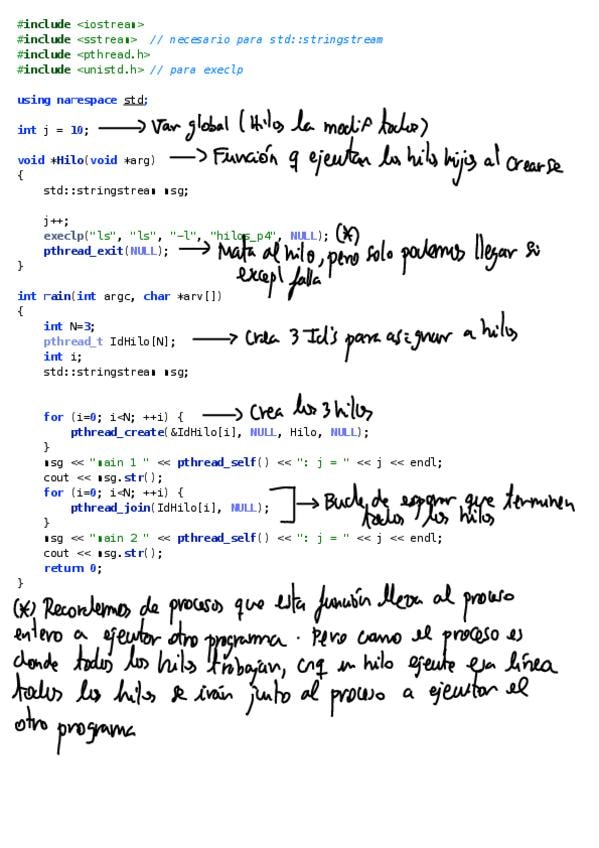 #include <iostream>
#include <sstream> // necesario para std::stringstream
#include <pthread.h>
#include <unistd.h> // para execlp
using namespace std;
int j = 10; → Var global (Hilos la modif todos)
void *Hilo(void *arg) → Función q ejecutan los hilos hijos al crearse
{
std::stringstream msg;
j++;
execlp("ls", "ls", "-l", "hilos_p4", NULL); (*)
pthread_exit(NULL); → Mata al hilo, pero solo podemos llegar si
excepl falla
}
int main(int argc, char *arv[])
{
int N=3;
pthread_t IdHilo[N]; → Crea 3 Id's para asignar a hilos
int i;
std::stringstream msg;
for (i=0; i<N; ++i) { → Crea los 3 hilos
pthread_create(&IdHilo[i], NULL, Hilo, NULL);
}
msg << "main 1 " << pthread_self() << ": j = " << j << endl;
cout << msg.str();
for (i=0; i<N; ++i) { → Bucle de esperar que terminen
pthread_join(IdHilo[i], NULL); todos los hilos
}
msg << "main 2 " << pthread_self() << ": j = " << j << endl;
cout << msg.str();
return 0;
}
(*) Recordemos de procesos que esta función lleva al proceso
entero a ejecutar otro programa. Pero como el proceso es
donde todos los hilos trabajan, cnq un hilo ejecute esa línea
todos los hilos se irán junto al proceso a ejecutar el
otro programa